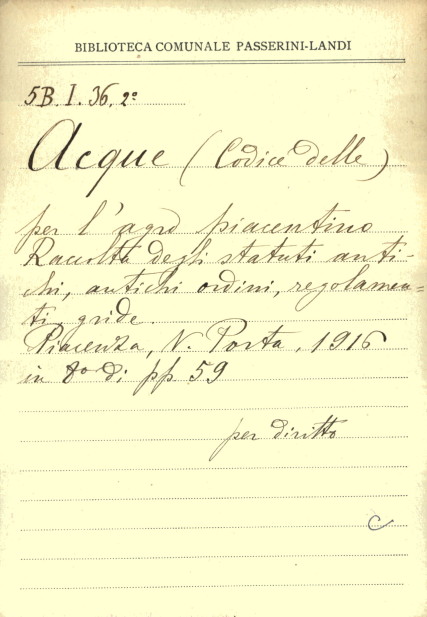 BIBLIOTECA COMUNALE PASSERINI-LANDI
5B. I. 36, 2º
Acque (Codice delle)
per l'agro piacentino
Raccolta degli statuti anti-
chi, antichi ordini, regolamen=
ti, gride.
Piacenza, N. Porta, 1916
in 8º di pp. 59
per diritto
C